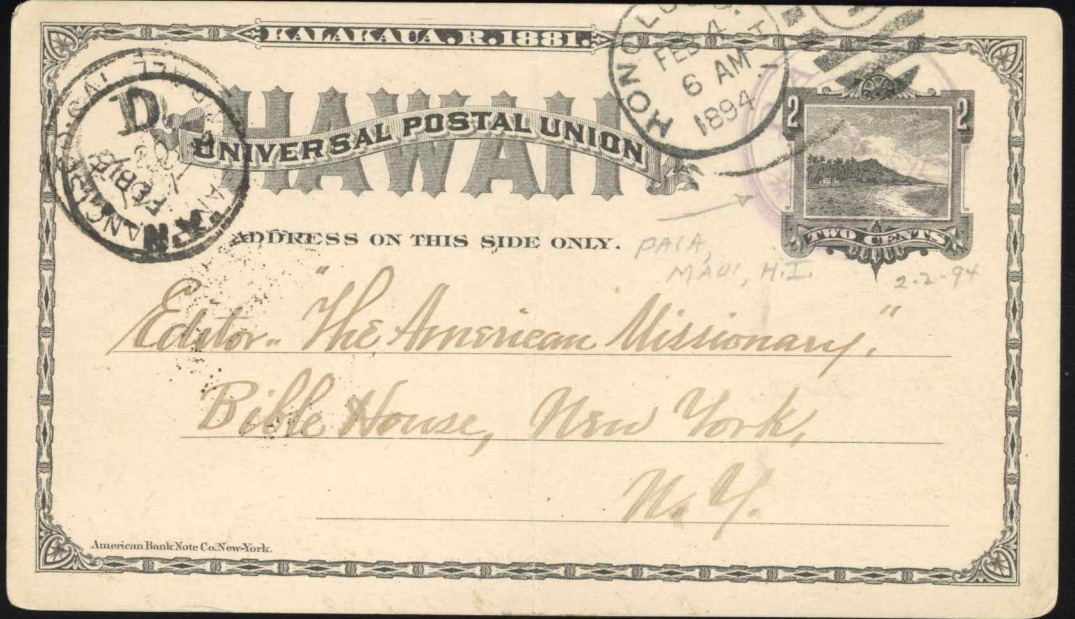 KALAKAUA.R.1881.
HAWAII
UNIVERSAL POSTAL UNION
HONOLULU. H.I.
FEB 4
6 AM
1894
2 2
TWO CENTS
D.
ADDRESS ON THIS SIDE ONLY.
PAIA,
MAUI, H.I.
2-2-94
Editor "The American Missionary,"
Bible House, New York,
N.Y.
American Bank Note Co. New-York.